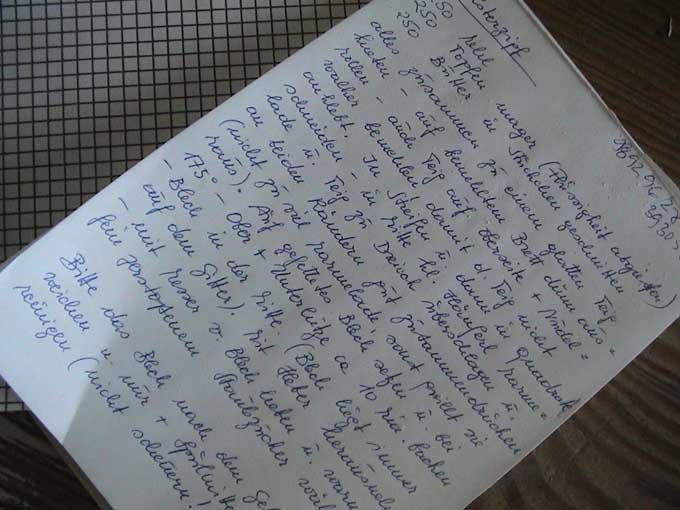 250 Mehl
250 Topfen mager (Flüssigkeit abgießen)
250 Butter in Stückchen geschnitten
alles zusammen zu einem glatten Teig
kneten - auf bemehltem Brett dünn aus=
rollen - auch Teig auf Oberseite + Nudel=
walker bemehlen damit d Teig nicht
anklebt. In Streifen u. dann in Quadrate
schneiden - in Mitte kl. Häuferl Marme=
lade u. Teig zu Dreieck überschlagen u.
an beiden Rändern gut zusammendrücken
(nicht zu viel Marmelade, sonst quillt sie
raus). Auf gefettetes Blech setzen u. bei
175° - Ober + Unterhitze ca 10 Min. backen
- Blech in der Mitte. (Blech liegt immer
auf dem Gitter). Mit Heber
- mit Messer v. Blech heben u. warm
fein Staubzucker
Bitte das Blech nach dem
weichen u. nur + Spülmittel
reinigen (nicht scheuern!